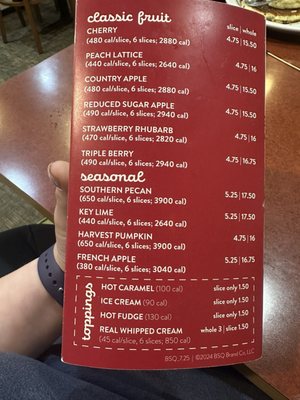 classic fruit
slice | whole
CHERRY
(480 cal/slice, 6 slices; 2880 cal) 4.75 | 15.50
PEACH LATTICE
(440 cal/slice, 6 slices; 2640 cal) 4.75 | 16
COUNTRY APPLE
(480 cal/slice, 6 slices; 2880 cal) 4.75 | 15.50
REDUCED SUGAR APPLE
(490 cal/slice, 6 slices; 2940 cal) 4.75 | 15.50
STRAWBERRY RHUBARB
(470 cal/slice, 6 slices; 2820 cal) 4.75 | 16
TRIPLE BERRY
(490 cal/slice, 6 slices; 2940 cal) 4.75 | 16.75
seasonal
SOUTHERN PECAN 5.25 | 17.50
(650 cal/slice, 6 slices; 3900 cal)
KEY LIME 5.25 | 17.50
(440 cal/slice, 6 slices; 2640 cal)
HARVEST PUMPKIN 4.75 | 16
(650 cal/slice, 6 slices; 3900 cal)
FRENCH APPLE 5.25 | 16.75
(380 cal/slice, 6 slices; 3040 cal)
toppings
HOT CARAMEL (100 cal) slice only 1.50
ICE CREAM (90 cal) slice only 1.50
HOT FUDGE (130 cal) slice only 1.50
REAL WHIPPED CREAM whole 3 | slice 1.50
(45 cal/slice, 6 slices; 850 cal)
BSQ_7.25 | ©2024 BSQ Brand Co, LLC